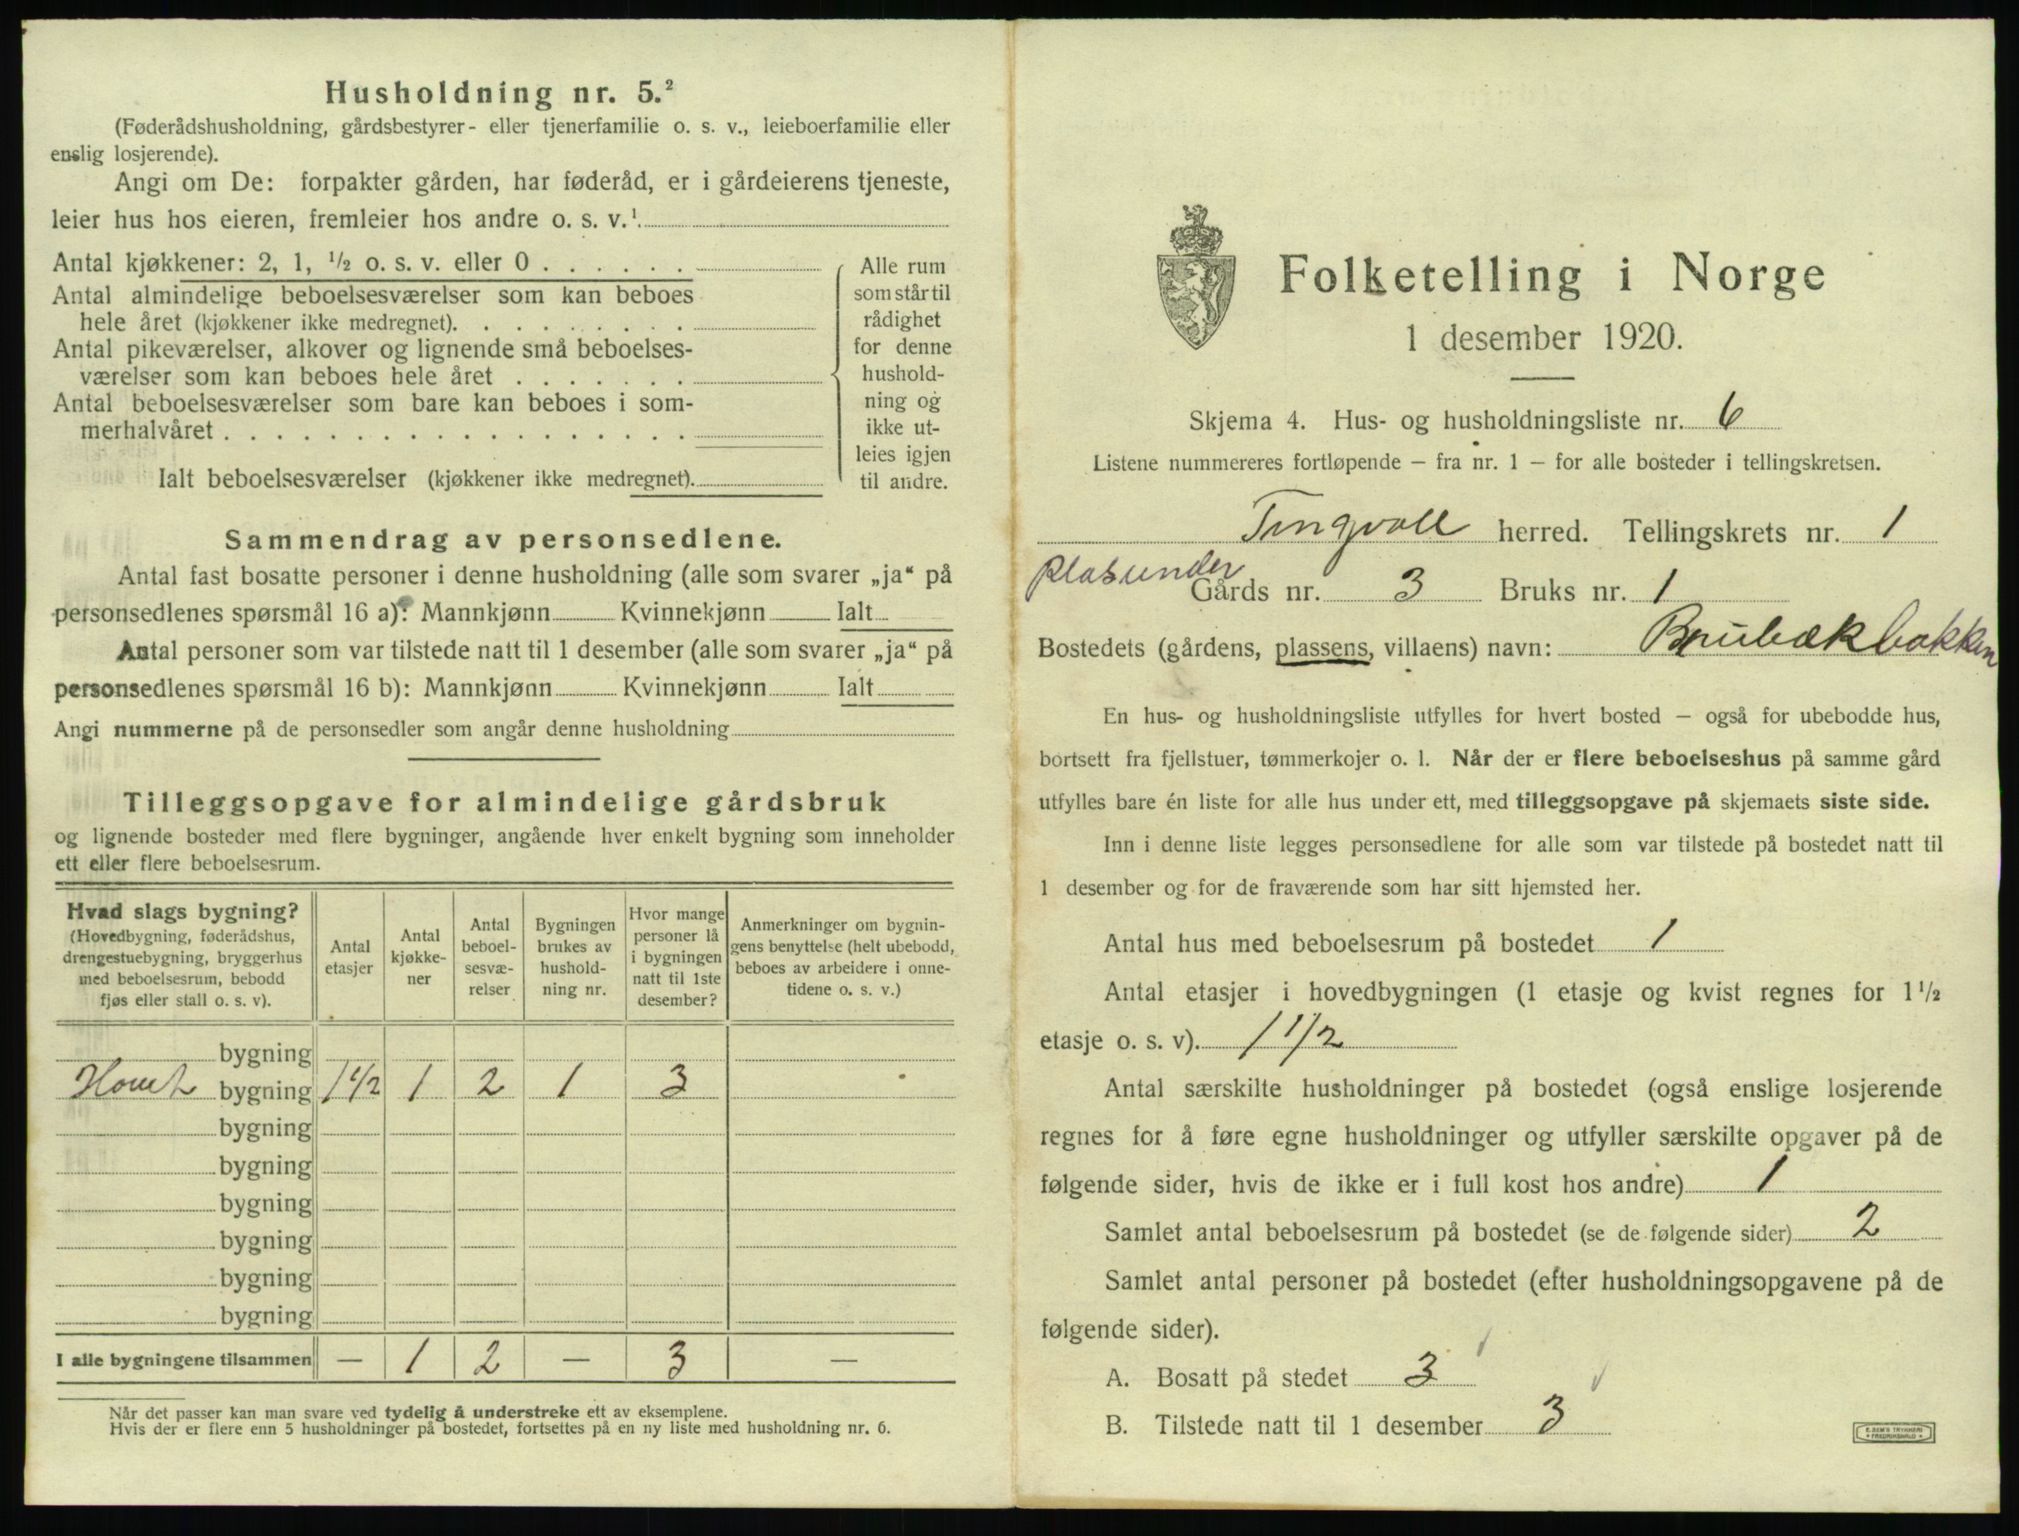 Husholdning nr. 5.²
(Føderådshusholdning, gårdsbestyrer- eller tjenerfamilie o. s. v., leieboerfamilie eller
enslig losjerende).
Angi om De: forpakter gården, har føderåd, er i gårdeierens tjeneste,
leier hus hos eieren, fremleier hos andre o. s. v.¹
Antal kjøkkener: 2, 1, ½ o. s. v. eller 0 . . . . . .
Antal almindelige beboelsesværelser som kan beboes
hele året (kjøkkener ikke medregnet). . . . . . . . .
Antal pikeværelser, alkover og lignende små beboelses-
værelser som kan beboes hele året . . . . . . .
Antal beboelsesværelser som bare kan beboes i som-
merhalvåret . . . . . . . . . . . . . . . . . .
Ialt beboelsesværelser (kjøkkener ikke medregnet).
Alle rum
som står til
rådighet
for denne
hushold-
ning og
ikke ut-
leies igjen
til andre.
Sammendrag av personsedlene.
Antal fast bosatte personer i denne husholdning (alle som svarer „ja“ på
personsedlenes spørsmål 16 a): Mannkjønn Kvinnekjønn Ialt
Antal personer som var tilstede natt til 1 desember (alle som svarer „ja“ på
personsedlenes spørsmål 16 b): Mannkjønn Kvinnekjønn Ialt
Angi nummerne på de personsedler som angår denne husholdning
Tilleggsopgave for almindelige gårdsbruk
og lignende bosteder med flere bygninger, angående hver enkelt bygning som inneholder
ett eller flere beboelsesrum.
Hvad slags bygning?
(Hovedbygning, føderådshus,
drengestuebygning, bryggerhus
med beboelsesrum, bebodd
fjøs eller stall o. s. v).
Antal
etasjer
Antal
kjøkke-
ner
Antal
beboel-
sesvæ-
relser
Bygningen
brukes av
hushold-
ning nr.
Hvor mange
personer lå
i bygningen
natt til 1ste
desember?
Anmerkninger om bygnin-
gens benyttelse (helt ubebodd,
beboes av arbeidere i onne-
tidene o. s. v.)
bygning
Hovet bygning 1½ 1 2 1 3
bygning
bygning
bygning
bygning
bygning
bygning
I alle bygningene tilsammen — 1 2 — 3 —
Når det passer kan man svare ved tydelig å understreke ett av eksemplene.
Hvis der er flere enn 5 husholdninger på bostedet, fortsettes på en ny liste med husholdning nr. 6.
Folketelling i Norge
1 desember 1920.
Skjema 4. Hus- og husholdningsliste nr. 6
Listene nummereres fortløpende — fra nr. 1 — for alle bosteder i tellingskretsen.
Tingvoll herred. Tellingskrets nr. 1
Plasunder
Gårds nr. 3 Bruks nr. 1
Bostedets (gårdens, plassens, villaens) navn: Brubækbakken
En hus- og husholdningsliste utfylles for hvert bosted — også for ubebodde hus,
bortsett fra fjellstuer, tømmerkojer o. l. Når der er flere beboelseshus på samme gård
utfylles bare én liste for alle hus under ett, med tilleggsopgave på skjemaets siste side.
Inn i denne liste legges personsedlene for alle som var tilstede på bostedet natt til
1 desember og for de fraværende som har sitt hjemsted her.
Antal hus med beboelsesrum på bostedet 1
Antal etasjer i hovedbygningen (1 etasje og kvist regnes for 1½
etasje o. s. v). 1 1/2
Antal særskilte husholdninger på bostedet (også enslige losjerende
regnes for å føre egne husholdninger og utfyller særskilte opgaver på de
følgende sider, hvis de ikke er i full kost hos andre) 1
Samlet antal beboelsesrum på bostedet (se de følgende sider) 2
Samlet antal personer på bostedet (efter husholdningsopgavene på de
følgende sider).
A. Bosatt på stedet 3
B. Tilstede natt til 1 desember 3
E. SEM'S TRYKKERI
FREDRIKSHALD